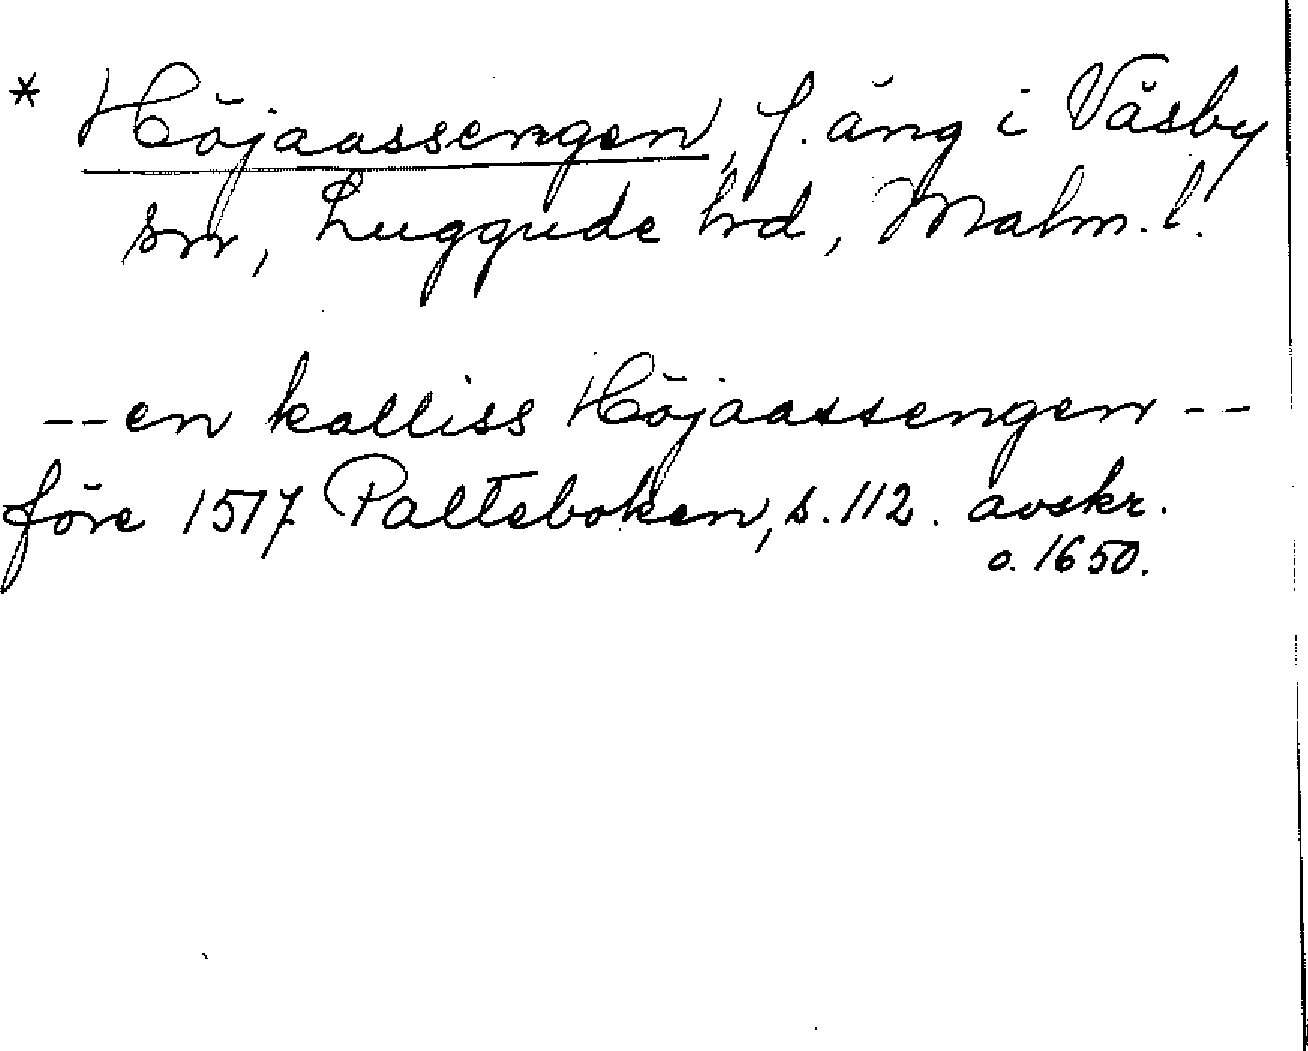 * Höjaassengen, f. äng i Väsby
sn, Luggude hd, Malm. l.
-- en kalliss Höjaassengen --
före 1517 Palteboken, s. 112. avskr.
o. 1650.